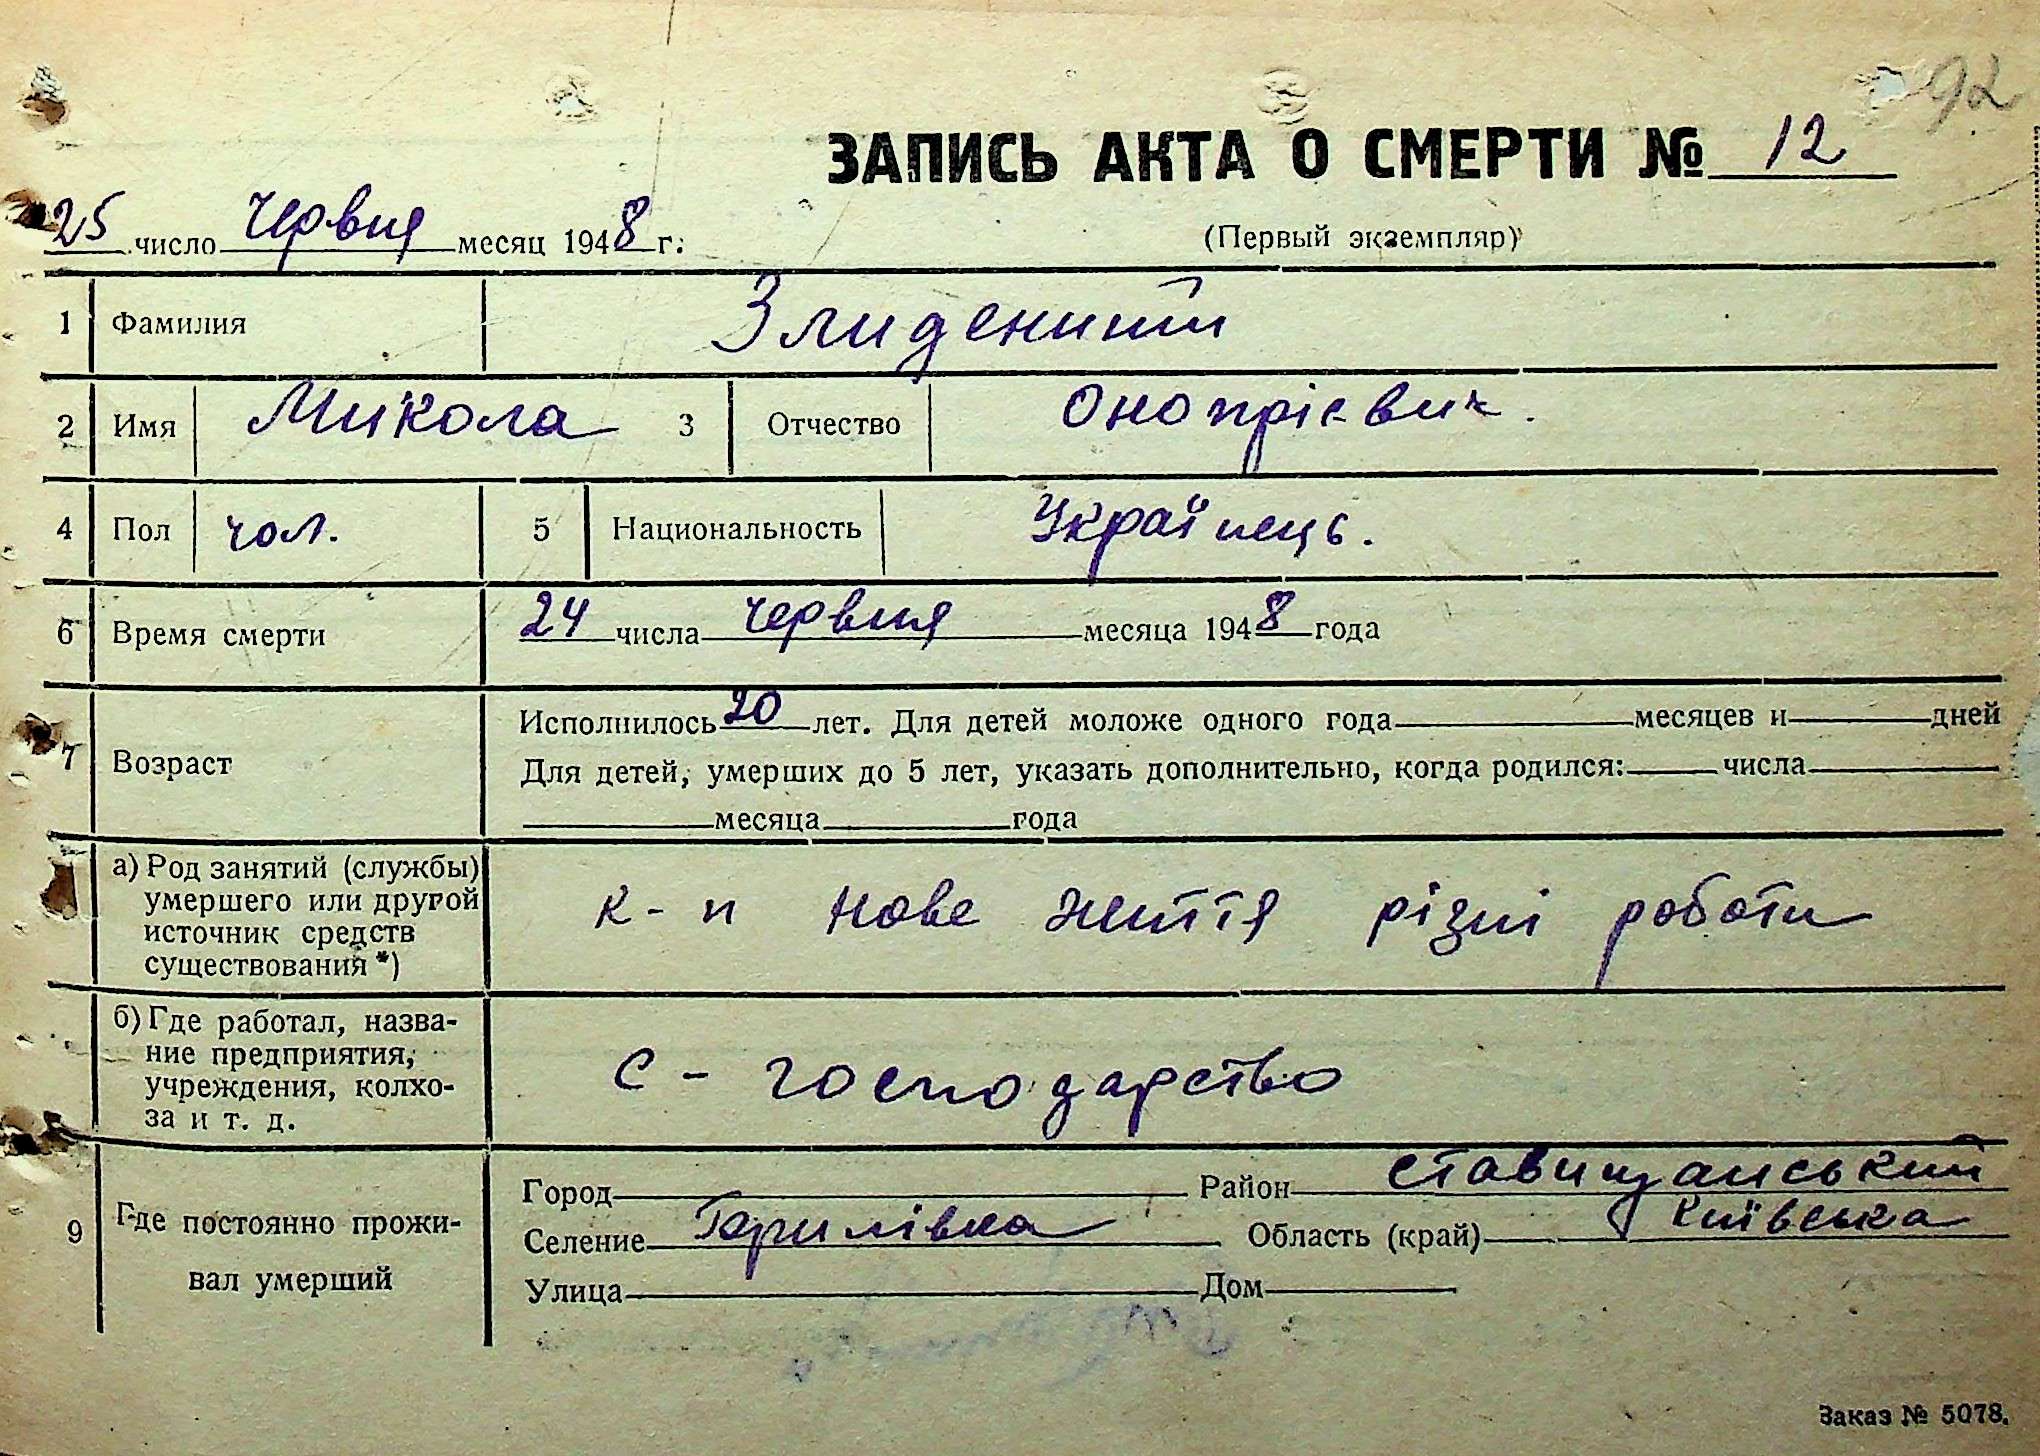 92
ЗАПИСЬ АКТА О СМЕРТИ № 12
25 число червня месяц 1948 г.
(Первый экземпляр)
1 Фамилия Злиденний
2 Имя Микола 3 Отчество Онопрієвич.
4 Пол чол. 5 Национальность Українець.
6 Время смерти 24 числа червня месяца 1948 года
7 Возраст Исполнилось 20 лет. Для детей моложе одного года месяцев и дней
Для детей, умерших до 5 лет, указать дополнительно, когда родился: числа
месяца года
а) Род занятий (службы)
умершего или другой
источник средств
существования *)
к-п нове життя різні роботи
б) Где работал, назва-
ние предприятия,
учреждения, колхо-
за и т. д.
с-господарство
9 Где постоянно прожи-
вал умерший
Город Район ставищанський
Селение Гейсиха Область (край) Київська
Улица Дом
Заказ № 5078.